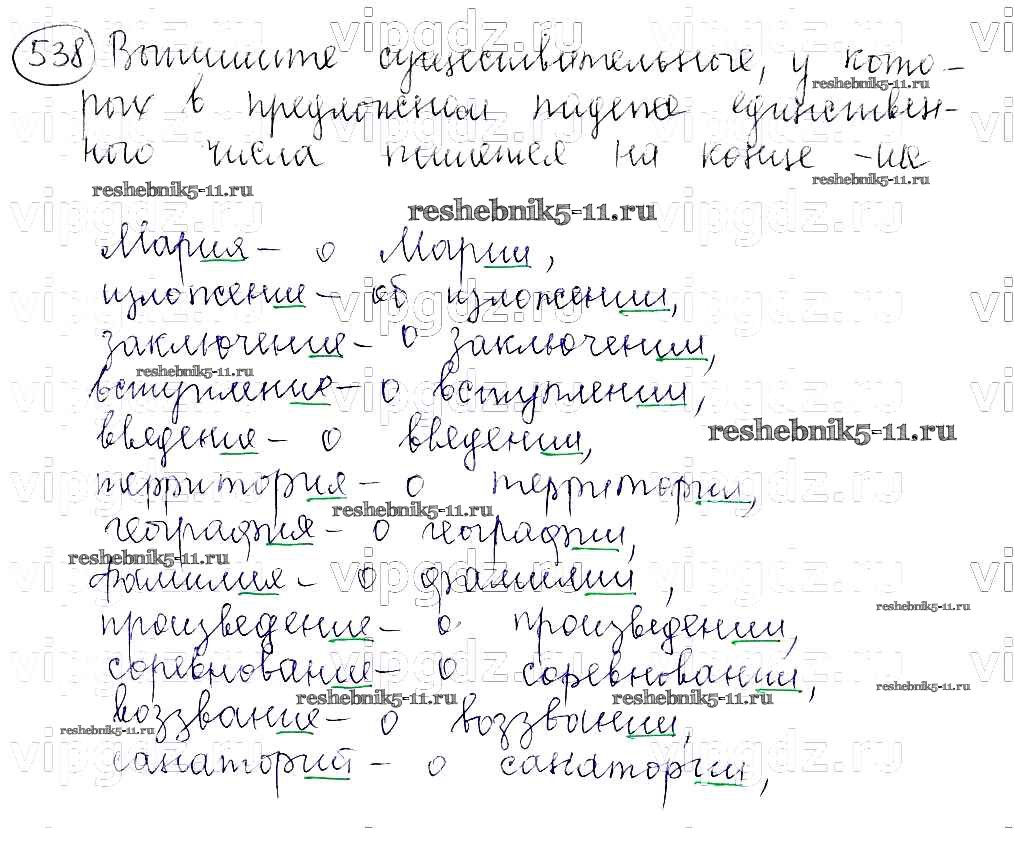 538 Выпишите существительные, у кото-
рых в предложном падеже единствен-
ного числа пишется на конце -ии
Мария – о Марии,
изложение – об изложении,
заключение – о заключении,
вступление – о вступлении,
введение – о введении,
территория – о территории,
география – о географии,
фамилия – о фамилии,
произведение – о произведении,
соревнование – о соревновании,
воззвание – о воззвании,
санаторий – о санатории,
reshebnik5-11.ru
vipgdz.ru